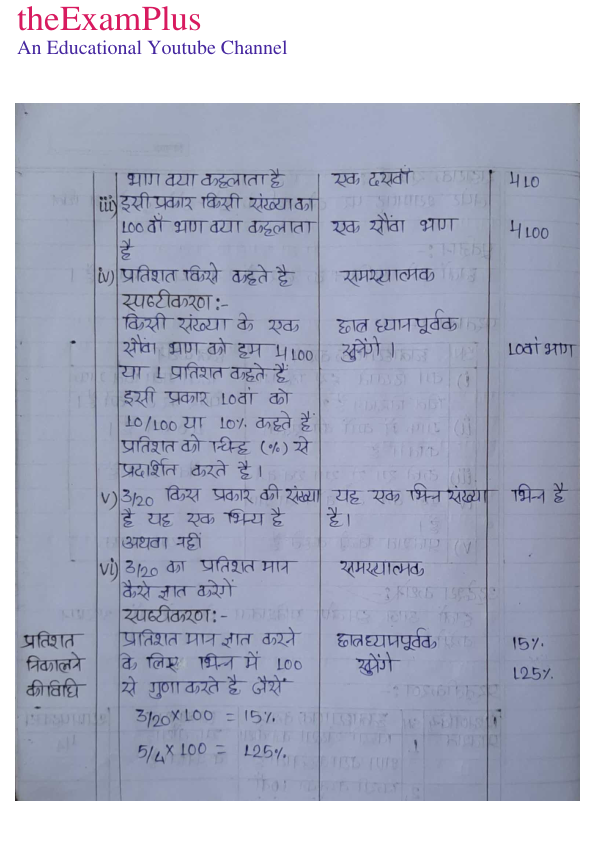 theExamPlus
An Educational Youtube Channel
भाग क्या कहलाता है
एक दसवाँ
1/10
iii) इसी प्रकार किसी संख्या का
100 वाँ भाग क्या कहलाता
है
एक सौंवा भाग
1/100
iv) प्रतिशत किसे कहते है
समस्यात्मक
स्पष्टीकरण:-
किसी संख्या के एक
सौंवा भाग को हम 1/100
या 1 प्रतिशत कहते हैं
इसी प्रकार 10वां को
10/100 या 10% कहते हैं
प्रतिशत को चिन्ह (%) से
प्रदार्शित करते है।
छात्र ध्यानपूर्वक
सुनेंगे।
10वां भाग
v) 3/20 किस प्रकार की संख्या
है यह एक भिन्य है
अथवा नहीं
यह एक भिन्न संख्या
है।
भिन्न है
vi) 3/20 का प्रतिशत मान
कैसे ज्ञात करेगें
समस्यात्मक
स्पष्टीकरण:-
प्रतिशत
निकालने
की विधि
प्रतिशत मान ज्ञात करने
के लिए भिन्न में 100
से गुणा करते है जैसे
3/20 × 100 = 15%
5/4 × 100 = 125%
छात्र ध्यानपूर्वक
सुनेंगे
15%
125%